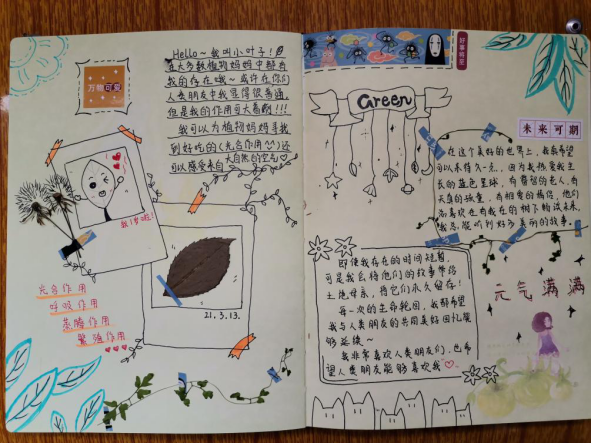 Hello~我叫小叶子!
在大多数植物妈妈中都有
我的存在哦~或许在你们
人类朋友中我显得很普通
但是我的作用可大着咧!!!
我可以为植物妈妈寻找
到好吃的(光合作用^^)还
可以感受来自大自然的空气
万物可爱
我1岁啦!
21.3.13.
光合作用
呼吸作用
蒸腾作用
繁殖作用
好事将至
Green
未来可期
在这个美好的世界上,我很希望
可以永待久一点,因为我热爱我生
长的蓝色星球,有智慧的老人,有
天真的孩童,有相爱的情侣,他们
都喜欢也有我在的树下畅谈未来,
我总能听到好多美丽的故事。
即使我存在的时间短暂,
可是我已将他们的故事带给
土地母亲,将它们永久留存!
每一次的生命轮回,我都希望
我与人类朋友的共同美好回忆能
够延续~
我非常喜欢人类朋友们,也希
望人类朋友能够喜欢我
元气满满